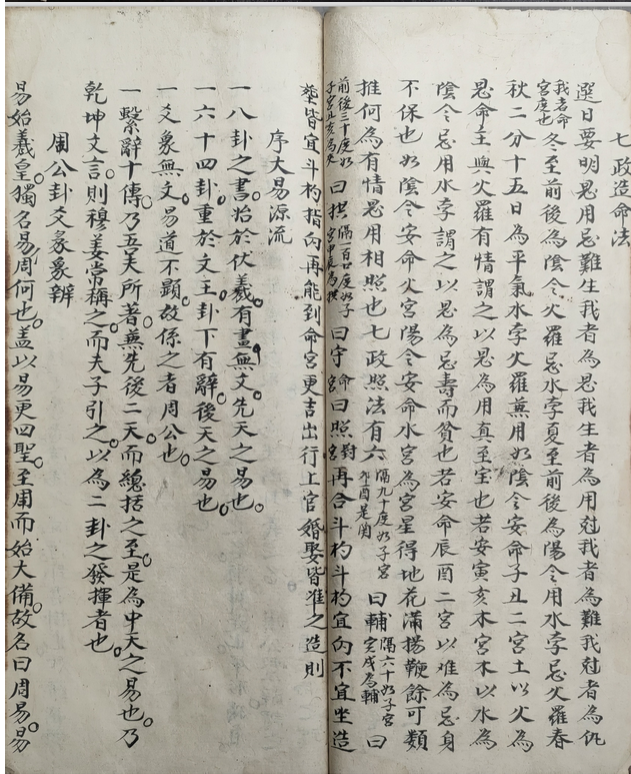 七政造命法
選日要明恩用忌難生我者為恩我生者為用尅我者為難我尅者為仇
我者命宮度也冬至前後為陰令火羅忌水孛夏至前後為陽令用水孛忌火羅春
秋二分十五日為平氣水孛火羅兼用如陰令安命子丑二宮土以火為
恩命主與火羅有情謂之以恩為用真至宝也若安寅亥木宮木以水為
陰令忌用水孛謂之以恩為忌壽而貧也若安命辰酉二宮以难為忌身
不保也如陰令安命火宮陽令安命水宮為宮星得地花滿揚鞭餘可類
推何為有情恩用相照也七政照法有六隔九十度如子宮卯酉是関曰輔隔六十如子宮寅戌為輔曰
前後三十度如子宮丑亥為夾曰拱隔一百廿度如子宮申辰為拱曰守命宮曰照對宮再合斗杓斗杓宜向不宜坐造
塟皆宜斗杓指向再能到命宮更吉出行上官婚娶皆准之造則
序大易源流
一八卦之書始於伏羲有畫無文先天之易也
一六十四卦重於文王卦下有辭後天之易也
一爻象無文易道不顯故係之者周公也
一繫辭十傳乃吾夫所著兼先後二天而總括之至是為中天之易也乃
乾坤文言則穆姜常稱之而夫子引之以為二卦之發揮者也
周公卦爻象彖辨
易始羲皇獨名易周何也盖以易更四聖至周而始大備故名曰周易易